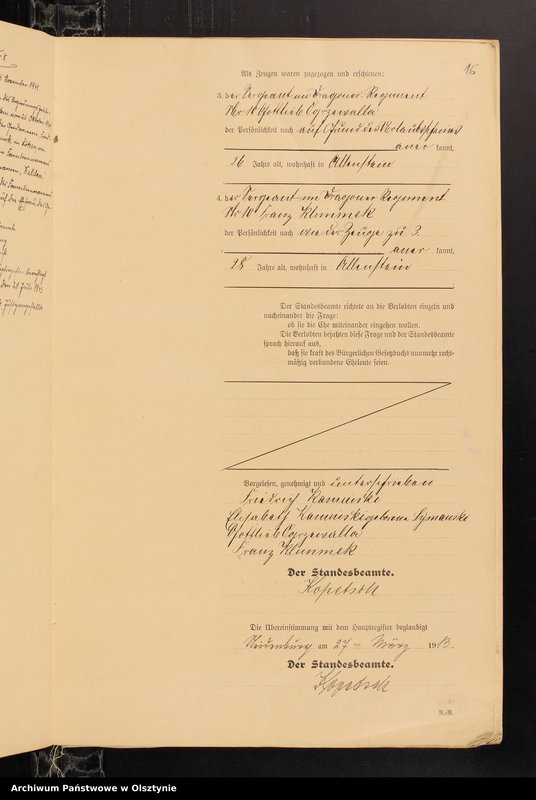 16
Als Zeugen waren zugezogen und erschienen:
3. der Sergeant im Dragoner Regiment
Nr 10 Gottlieb Ogrzewalla
der Persönlichkeit nach auf Grund des Urlaubspasses
aner kannt,
26 Jahre alt, wohnhaft in Allenstein
4. der Sergeant im Dragoner Regiment
Nr 10 Franz Klimmek
der Persönlichkeit nach wie der Zeuge zu 3.
aner kannt,
28 Jahre alt, wohnhaft in Allenstein
Der Standesbeamte richtete an die Verlobten einzeln und
nacheinander die Frage:
ob sie die Ehe miteinander eingehen wollen.
Die Verlobten bejahten diese Frage und der Standesbeamte
sprach hierauf aus,
daß sie kraft des Bürgerlichen Gesetzbuchs nunmehr recht-
mäßig verbundene Eheleute seien.
Vorgelesen, genehmigt und unterschrieben
Friedrich Kaminski
Elisabeth Kaminski geborene Symanski
Gottlieb Ogrzewalla
Franz Klimmek
Der Standesbeamte.
Kopetsch
Die Übereinstimmung mit dem Hauptregister beglaubigt
Neidenburg am 27 ten März 1913.
Der Standesbeamte.
Kopetsch
N.-R.
Archiwum Państwowe w Olsztynie